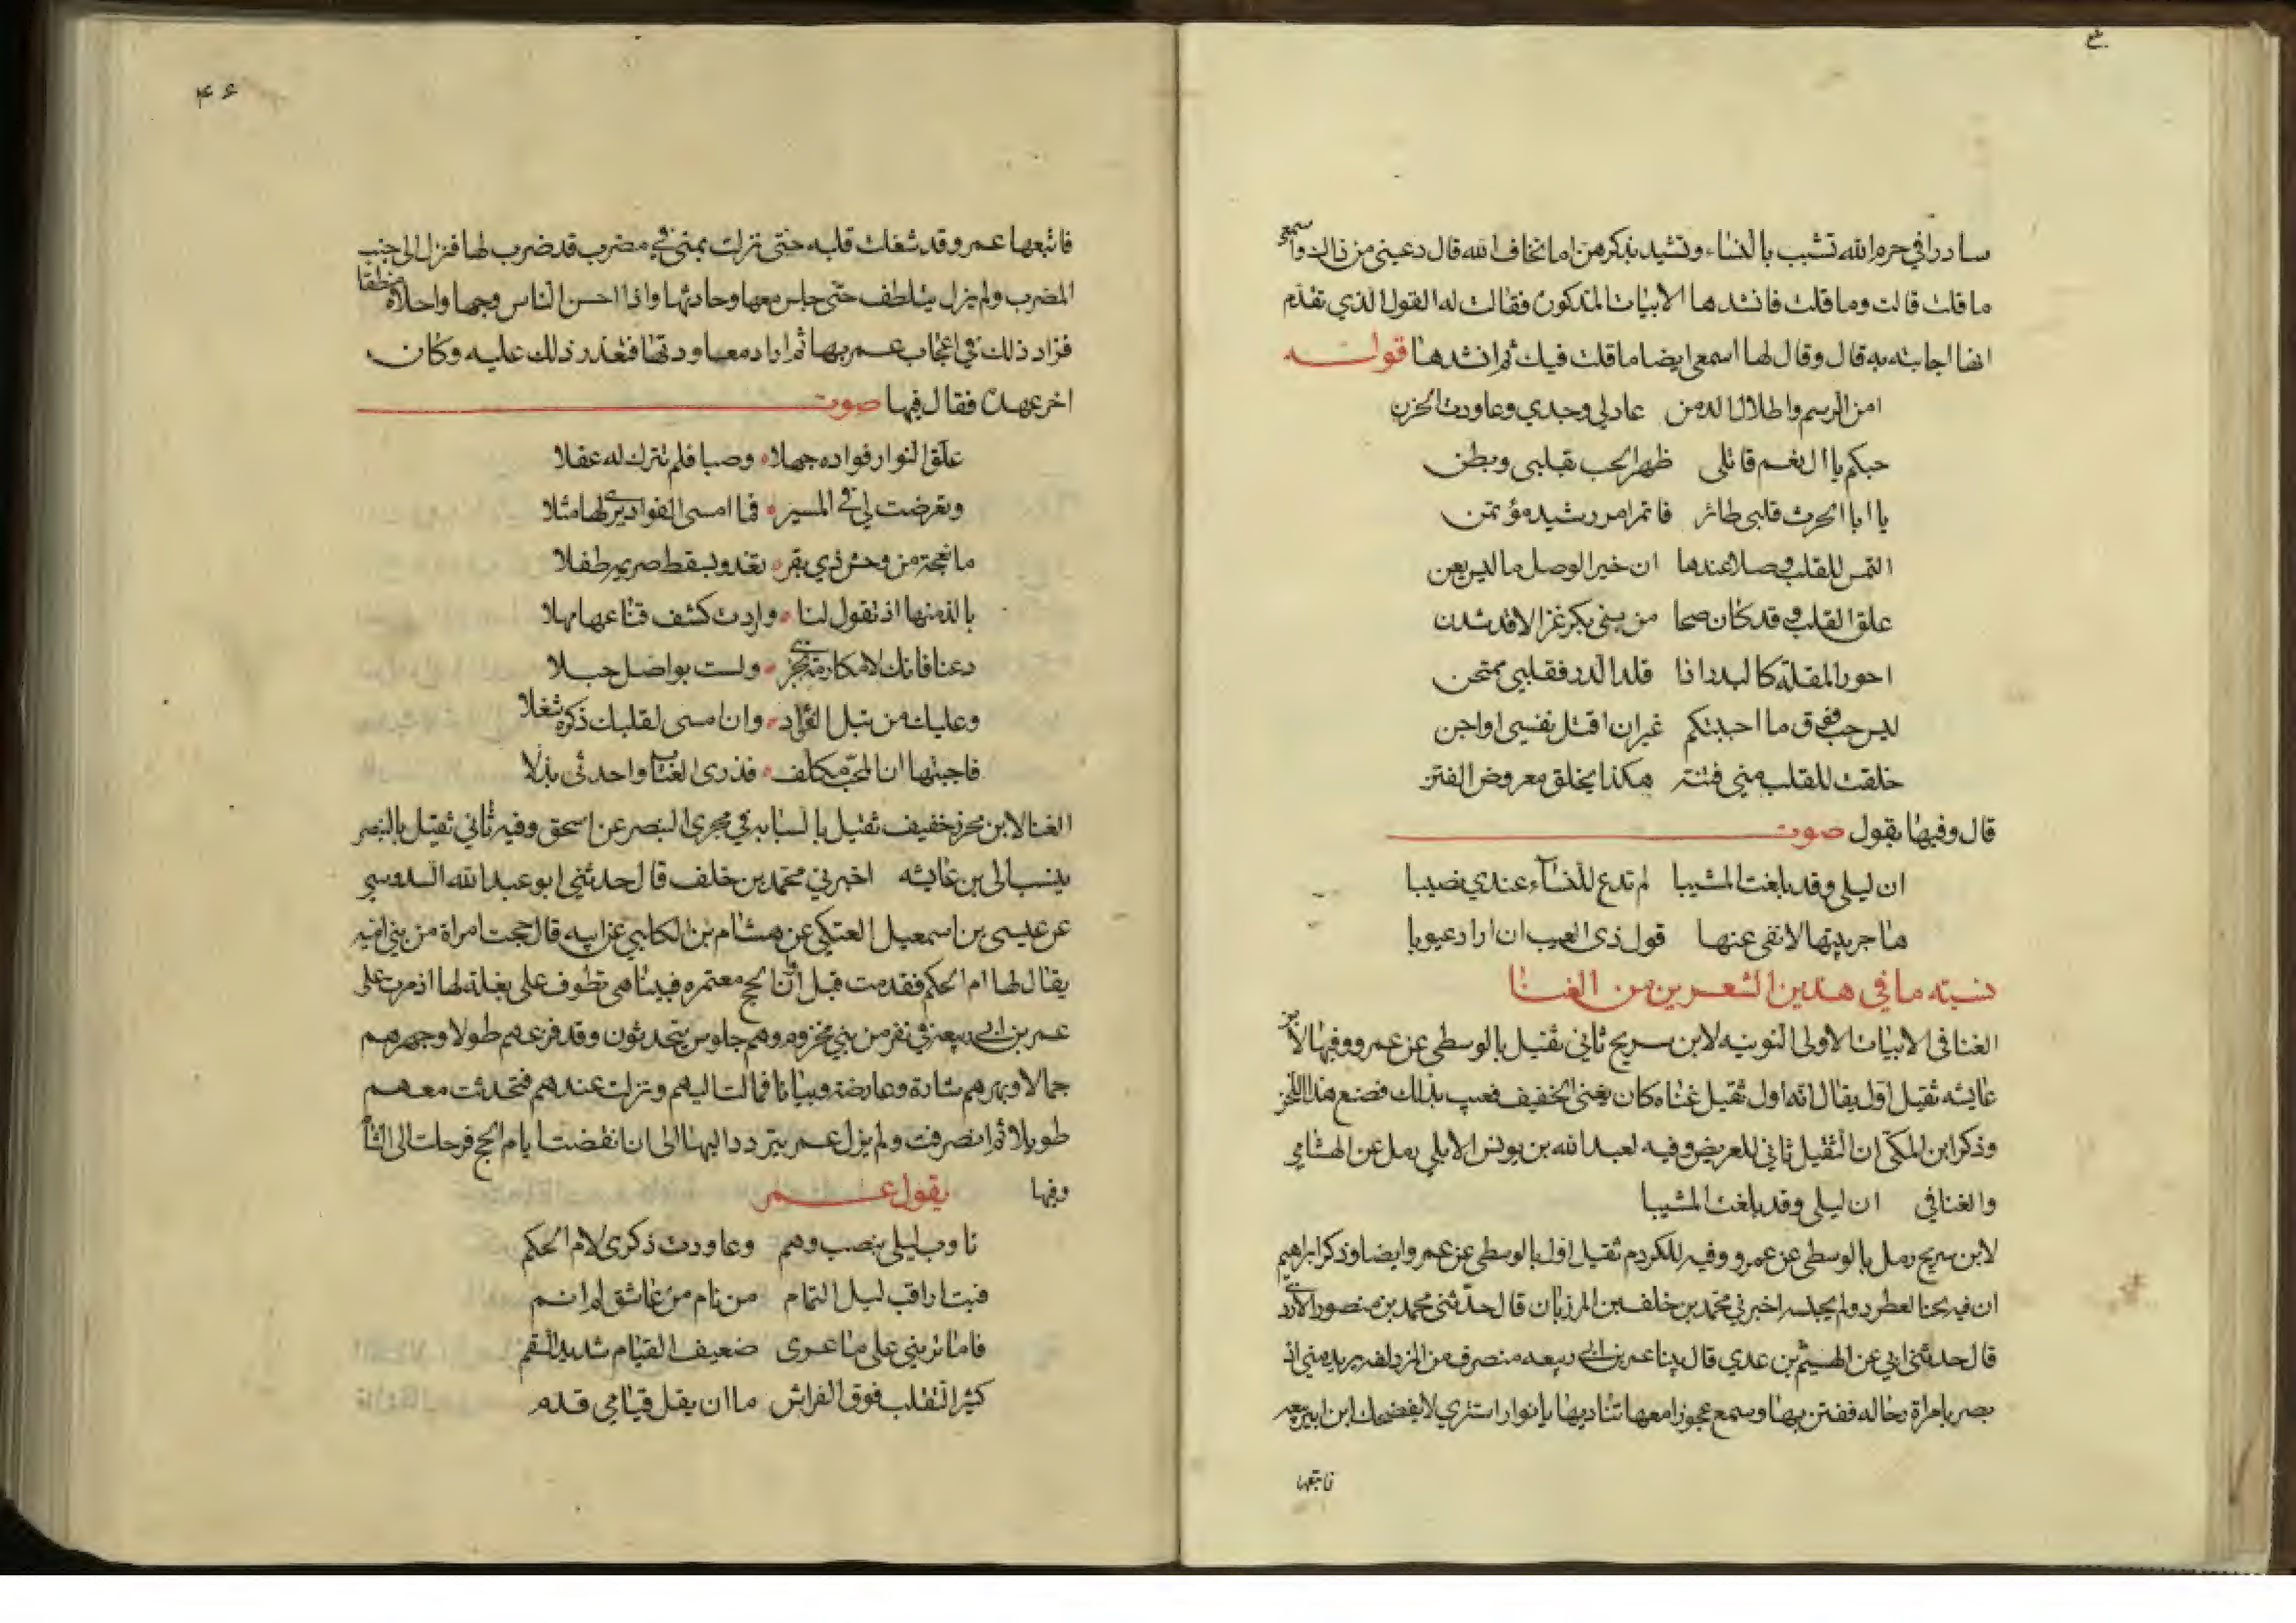 سادرا في حرم الله تشبب بالنساء وتشيد بذكرهن اما تخاف الله قال دعيني من ذاك واسمعي
ما قلت قالت وما قلت فانشدها الابيات المذكورة فقالت له القول الذي تقدم
انفا اجابته به قال وقال لها اسمعي ايضا ما قلت فيك ثم انشدها قوله
امن الرسم واطلال الدمن عاد لي وجدي وعاودت الحزن
حبكم يا ال نعم قاتلي ظهر الحب بقلبي وبطن
يا ابا الحرث قلبي طائر فاتمر امر رشيد مؤتمن
التمس للقلب وصلا عندها ان خير الوصل ما ليس يعن
علق القلب وقد كان صحا من بني بكر غزالا قد شدن
احور المقلة كالبدر اذا قلد الدر فقلبي ممتحن
ليس حب فوق ما احببتكم غير ان اقتل نفسي او اجن
خلقت للقلب مني فتنة هكذا يخلق معروض الفتن
قال وفيها يقول صوت
ان ليلى وقد بلغت المشيبا لم تدع للنساء عندي نصيبا
هاجر بيتها لانفي عنها قول ذي العيب ان اراد عيوبا
نسبته ما في هذين الشعرين من الغنا
الغنا في الابيات الاولى النونيه لابن سريج ثاني ثقيل بالوسطى عن عمرو وفيها لابن
عايشه ثقيل اول يقال انه اول ثقيل غناه كان يغني الخفيف فعيب بذلك فصنع هذا اللحن
وذكر ابن المكي ان الثقيل ثاني للغريض وفيه لعبد الله بن يونس الابلي رمل عن الهشامي
والغنا في ان ليلى وقد بلغت المشيبا
لابن سريج رمل بالوسطى عن عمرو وفيه للكردم ثقيل اول بالوسطى عن عمرو ايضا وذكر ابراهيم
ان فيه لحنا لعطرد ولم يجنسه اخبرني محمد بن خلف بن المرزبان قال حدثني محمد بن منصور الازدي
قال حدثني ابي عن الهيثم بن عدي قال بينا عمر بن ابي ربيعه منصرف من المزدلفه يريد مني اذ
بصر بامراة في رحاله ففتن بها وسمع عجوزا معها تناديها يا نوار استتري لا يفضحك ابن ابي ربيعه
فاتبعها
٤٦
فاتبعها عمر وقد شغلت قلبه حتى نزلت بمنى في مضرب قد ضرب لها فنزل الى جنب
المضرب ولم يزل يتلطف حتى جلس معها وحادثها واذا احسن الناس وجها واحلاه منطقا
فزاد ذلك في اعجاب عمر بها ثم اراد معاودتها فتعذر ذلك عليه وكان
اخر عهده فقال فيها صوت
علق النوار فواده جهلا وصبا فلم تترك له عقلا
وتعرضت لي في المسير فما امسى الفواد يرى لها مثلا
ما نعجة من وحش ذي بقر تغذو بسقط صريمه طفلا
بالذ منها اذ تقول لنا واردت كشف قناعها مهلا
دعنا فانك لا مكارمة تجزي ولست بواصل حبلا
وعليك من تبل الفؤاد وان امسى لقلبك ذكره شغلا
فاجبتها ان المحب مكلف فذري العتاب واحدثي بذلا
الغنا لابن محرز خفيف ثقيل بالسبابه في مجرى البنصر عن اسحق وفيه ثاني ثقيل بالبنصر
ينسب الى بن عايشه اخبرني محمد بن خلف قال حدثني ابو عبد الله السدوسي
عن عيسى بن اسمعيل العتكي عن هشام بن الكلبي عن ابيه قال حجت امراة من بني اميه
يقال لها ام الحكم فقدمت قبل اوان الحج معتمره فبينا هي تطوف على بغلة لها اذ مرت على
عمر بن ابي ربيعه في نفر من بني مخزوم وهم جلوس يتحدثون وقد فرعهم طولا وجهرهم
جمالا وبهرهم شارة وعارضة وبيانا فمالت اليهم ونزلت عندهم فتحدثت معهم
طويلا ثم انصرفت ولم يزل عمر يتردد اليها الى ان انقضت ايام الحج فرحلت الى الشام
وفيها يقول عمر
تاوب ليلى بنصب وهم وعاودت ذكرى لام الحكم
فبت اراقب ليل التمام من نام من عاشق لم انم
فاما تريني على ما عرى ضعيف القيام شديد السقم
كثير التقلب فوق الفراش ما ان يقل قيامي قدم